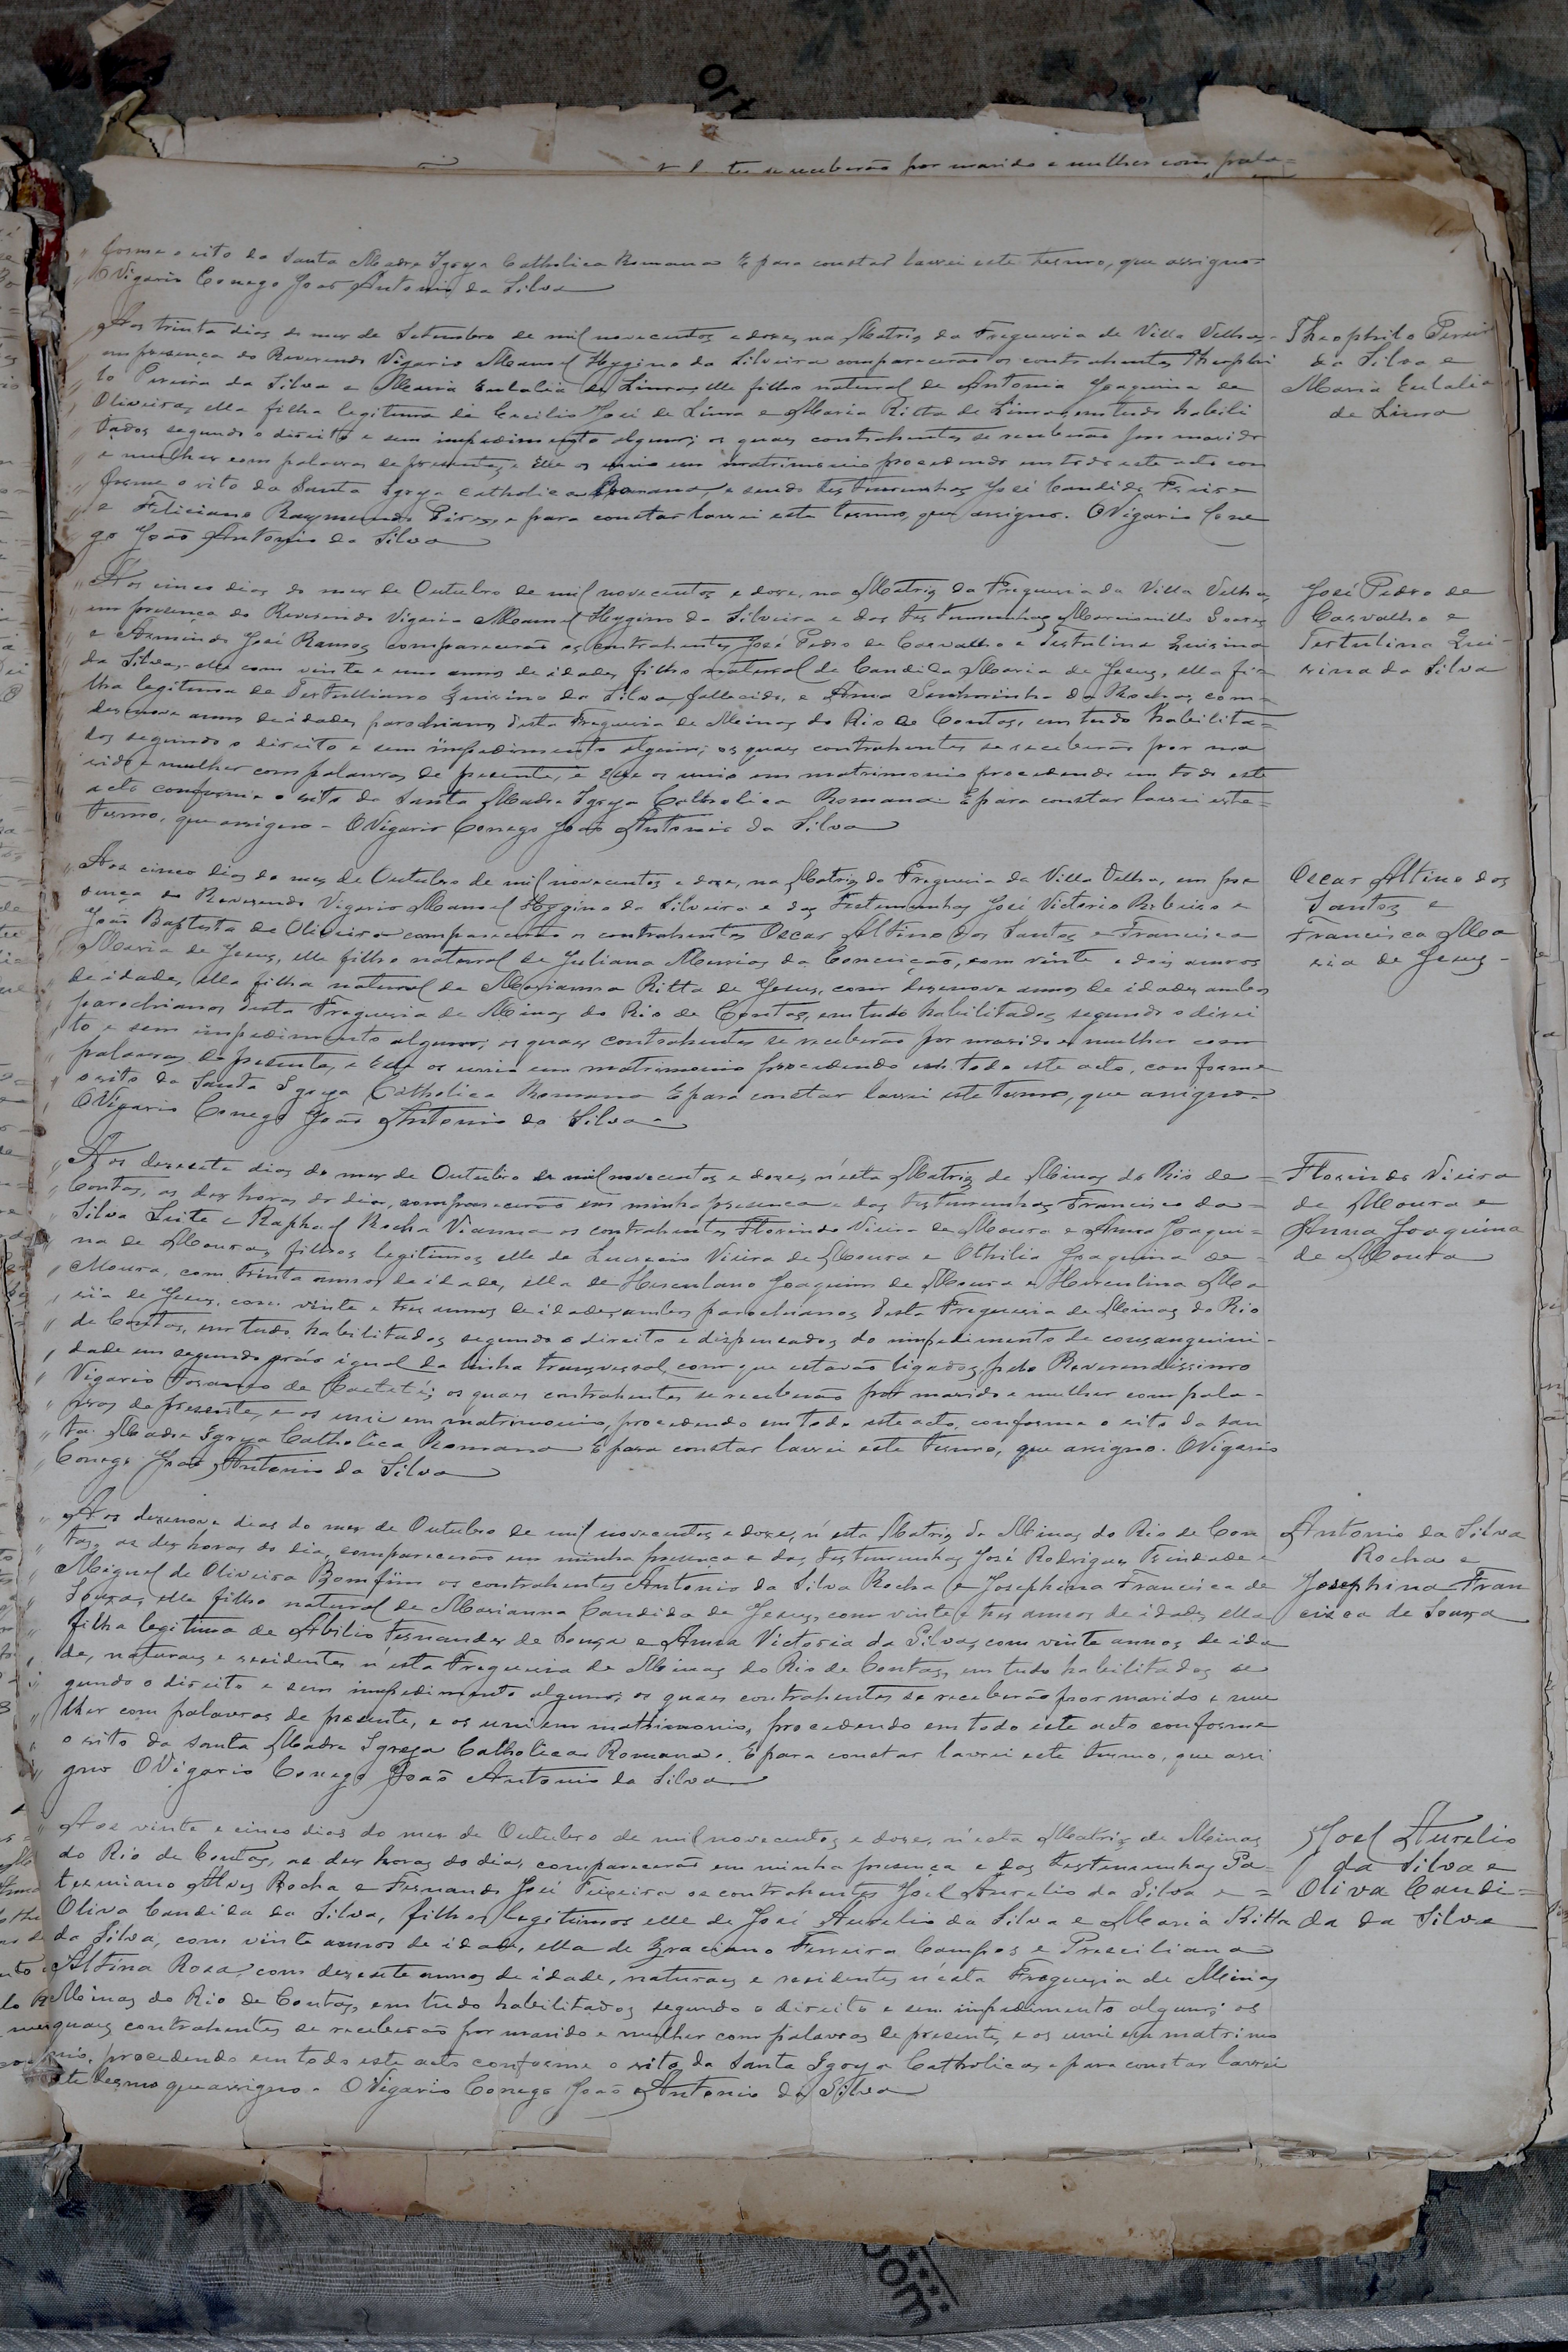 se receberão por marido e mulher com pala=
forme o rito da Santa Madre Igreja Catholica Romana E para constar lavrei este termo, que assigno-
O Vigario Conego João Antonio da Silva
Aos trinta dias do mez de Setembro de mil novecentos e doze, na Matriz da Freguesia de Villa Velha,
em presença do Reverendo Vigario Manoel Hygino da Silveira comparecerão os contrahentes Theophi
lo Pereira da Silva e Maria Eulalia de Lima, elle filho natural de Antonia Joaquina de
Oliveira, ella filha legitima de Cecilio José de Lima e Maria Ritta de Lima, em tudo habili
tados segundo o direito e sem impedimento algum; os quaes contrahentes se receberão por marido
e mulher com palavras de presente, e Elle os unio em matrimonio procedendo em todo este acto con
forme o rito da Santa Igreja Catholica Romana, e sendo testemunhas José Candido Freire
e Feliciano Raymundo Pires, e para constar lavrei este termo, que assigno. O Vigario Cone
go João Antonio da Silva
Theophilo Pereira
da Silva e
Maria Eulalia
de Lima
Aos cinco dias do mez de Outubro de mil novecentos e doze, na Matriz da Freguesia da Villa Velha,
em presença do Reverendo Vigario Manoel Hygino da Silveira e das testemunhas Marcionillo Soares
e Arminda José Ramos comparecerão os contrahentes José Pedro de Carvalho e Tertulina Quirina
da Silva, elle com vinte e um annos de idade, filho natural de Candida Maria de Jesus, ella fi=
lha legitima de Tertulliano Quirino da Silva, fallecido, e Anna da Rocha, com=
dezenove annos de idade, parochianos desta Freguesia de Minas do Rio de Contas, em tudo habilita=
dos segundo o direito e sem impedimento algum; os quaes contrahentes se receberão por ma
rido e mulher com palavras de presente, e Elle os unio em matrimonio procedendo em todo este
acto conforme o rito da Santa Madre Igreja Catholica Romana E para constar lavrei este=
termo, que assigno - O Vigario Conego João Antonio da Silva
José Pedro de
Carvalho e
Tertulina Qui=
rina da Silva
Aos cinco dias do mez de Outubro de mil novecentos e doze, na Matriz da Freguesia da Villa Velha, em pre
sença do Reverendo Vigario Manoel Hygino da Silveira e das testemunhas José Victorio Ribeiro e
João Baptista de Oliveira comparecerão os contrahentes Oscar Altino dos Santos e Francisca
Maria de Jesus, elle filho natural de Juliana Messias da Conceição, com vinte e dois annos
de idade, ella filha natural de Marianna Ritta de Jesus, com dezenove annos de idade, ambos
parochianos desta Freguesia de Minas do Rio de Contas, em tudo habilitados segundo o direi
to e sem impedimento algum; os quaes contrahentes se receberão por marido e mulher com
palavras de presente, e Elle os unio em matrimonio procedendo em todo este acto, conforme
o rito da Santa Igreja Catholica Romana E para constar lavrei este termo, que assigno-
O Vigario Conego João Antonio da Silva-
Oscar Altino dos
Santos e
Francisca Ma
ria de Jesus-
Aos dezesete dias do mez de Outubro de mil novecentos e doze, n'esta Matriz de Minas do Rio de=
Contas, as dez horas do dia, comparecerão em minha presença e das testemunhas Francisco da=
Silva Leite e Raphael Rocha Vianna os contrahentes Florindo Vieira de Moura e Anna Joaqui=
na de Moura, filhos legitimos, elle de Lucrecio Vieira de Moura e Othilia Joaquina de=
Moura, com trinta annos de idade, ella de Herculano Joaquim de Moura e Herculina Ma
ria de Jesus, com vinte e tres annos de idade, ambos parochianos desta Freguesia de Minas do Rio
de Contas, em tudo habilitados segundo o direito e dispensados do impedimento de consanguini-
dade em segundo gráo igual da linha transversal, com que estavão ligados, pelo Reverendissimo
Vigario Foraneo de Caeteté; os quaes contrahentes se receberão por marido e mulher com pala-
vras de presente, e os uni em matrimonio, procedendo em todo este acto, conforme o rito da San
ta Madre Igreja Catholica Romana E para constar lavrei este termo, que assigno. O Vigario
Conego João Antonio da Silva
Florindo Vieira
de Moura e
Anna Joaquina
de Moura
Aos dezenove dias do mez de Outubro de mil novecentos e doze, n'esta Matriz de Minas do Rio de Con
tas, as dez horas do dia, comparecerão em minha presença e das testemunhas José Rodrigues Trindade e
Miguel de Oliveira Bomfim os contrahentes Antonio da Silva Rocha e Josephina Francisca de
Souza, elle filho natural de Marianna Candida de Jesus, com vinte e tres annos de idade, ella
filha legitima de Abilio Fernandes de Souza e Anna Victoria da Silva, com vinte annos de ida
de, naturaes e residentes n'esta Freguesia de Minas do Rio de Contas, em tudo habilitados se
gundo o direito e sem impedimento algum; os quaes contrahentes se receberão por marido e mu
lher com palavras de presente, e os uni em matrimonio, procedendo em todo este acto conforme
o rito da Santa Madre Igreja Catholica Romana. E para constar lavrei este termo, que assi
gno O Vigario Conego João Antonio da Silva
Antonio da Silva
Rocha e
Josephina Fran
cisca de Souza
Aos vinte e cinco dias do mez de Outubro de mil novecentos e doze, n'esta Matriz de Minas
do Rio de Contas, as dez horas do dia, comparecerão em minha presença e das testemunhas Pa=
terniano Alves Rocha e Fernando José Teixeira os contrahentes Joel Aurelio da Silva e=
Oliva Candida da Silva, filhos legitimos elle de José Aurelio da Silva e Maria Ritta
da Silva, com vinte annos de idade, ella de Graciano Ferreira Campos e Presciliana
Altina Rosa, com dezesete annos de idade, naturaes e residentes n'esta Freguesia de Minas
Minas do Rio de Contas, em tudo habilitados segundo o direito e sem impedimento algum; os
quaes contrahentes se receberão por marido e mulher com palavras de presente, e os uni em matrimo
nio, procedendo em todo este acto conforme o rito da Santa Igreja Catholica, e para constar lavrei
este termo que assigno. O Vigario Conego João Antonio da Silva
Joel Aurelio
da Silva e
Oliva Candi=
da da Silva